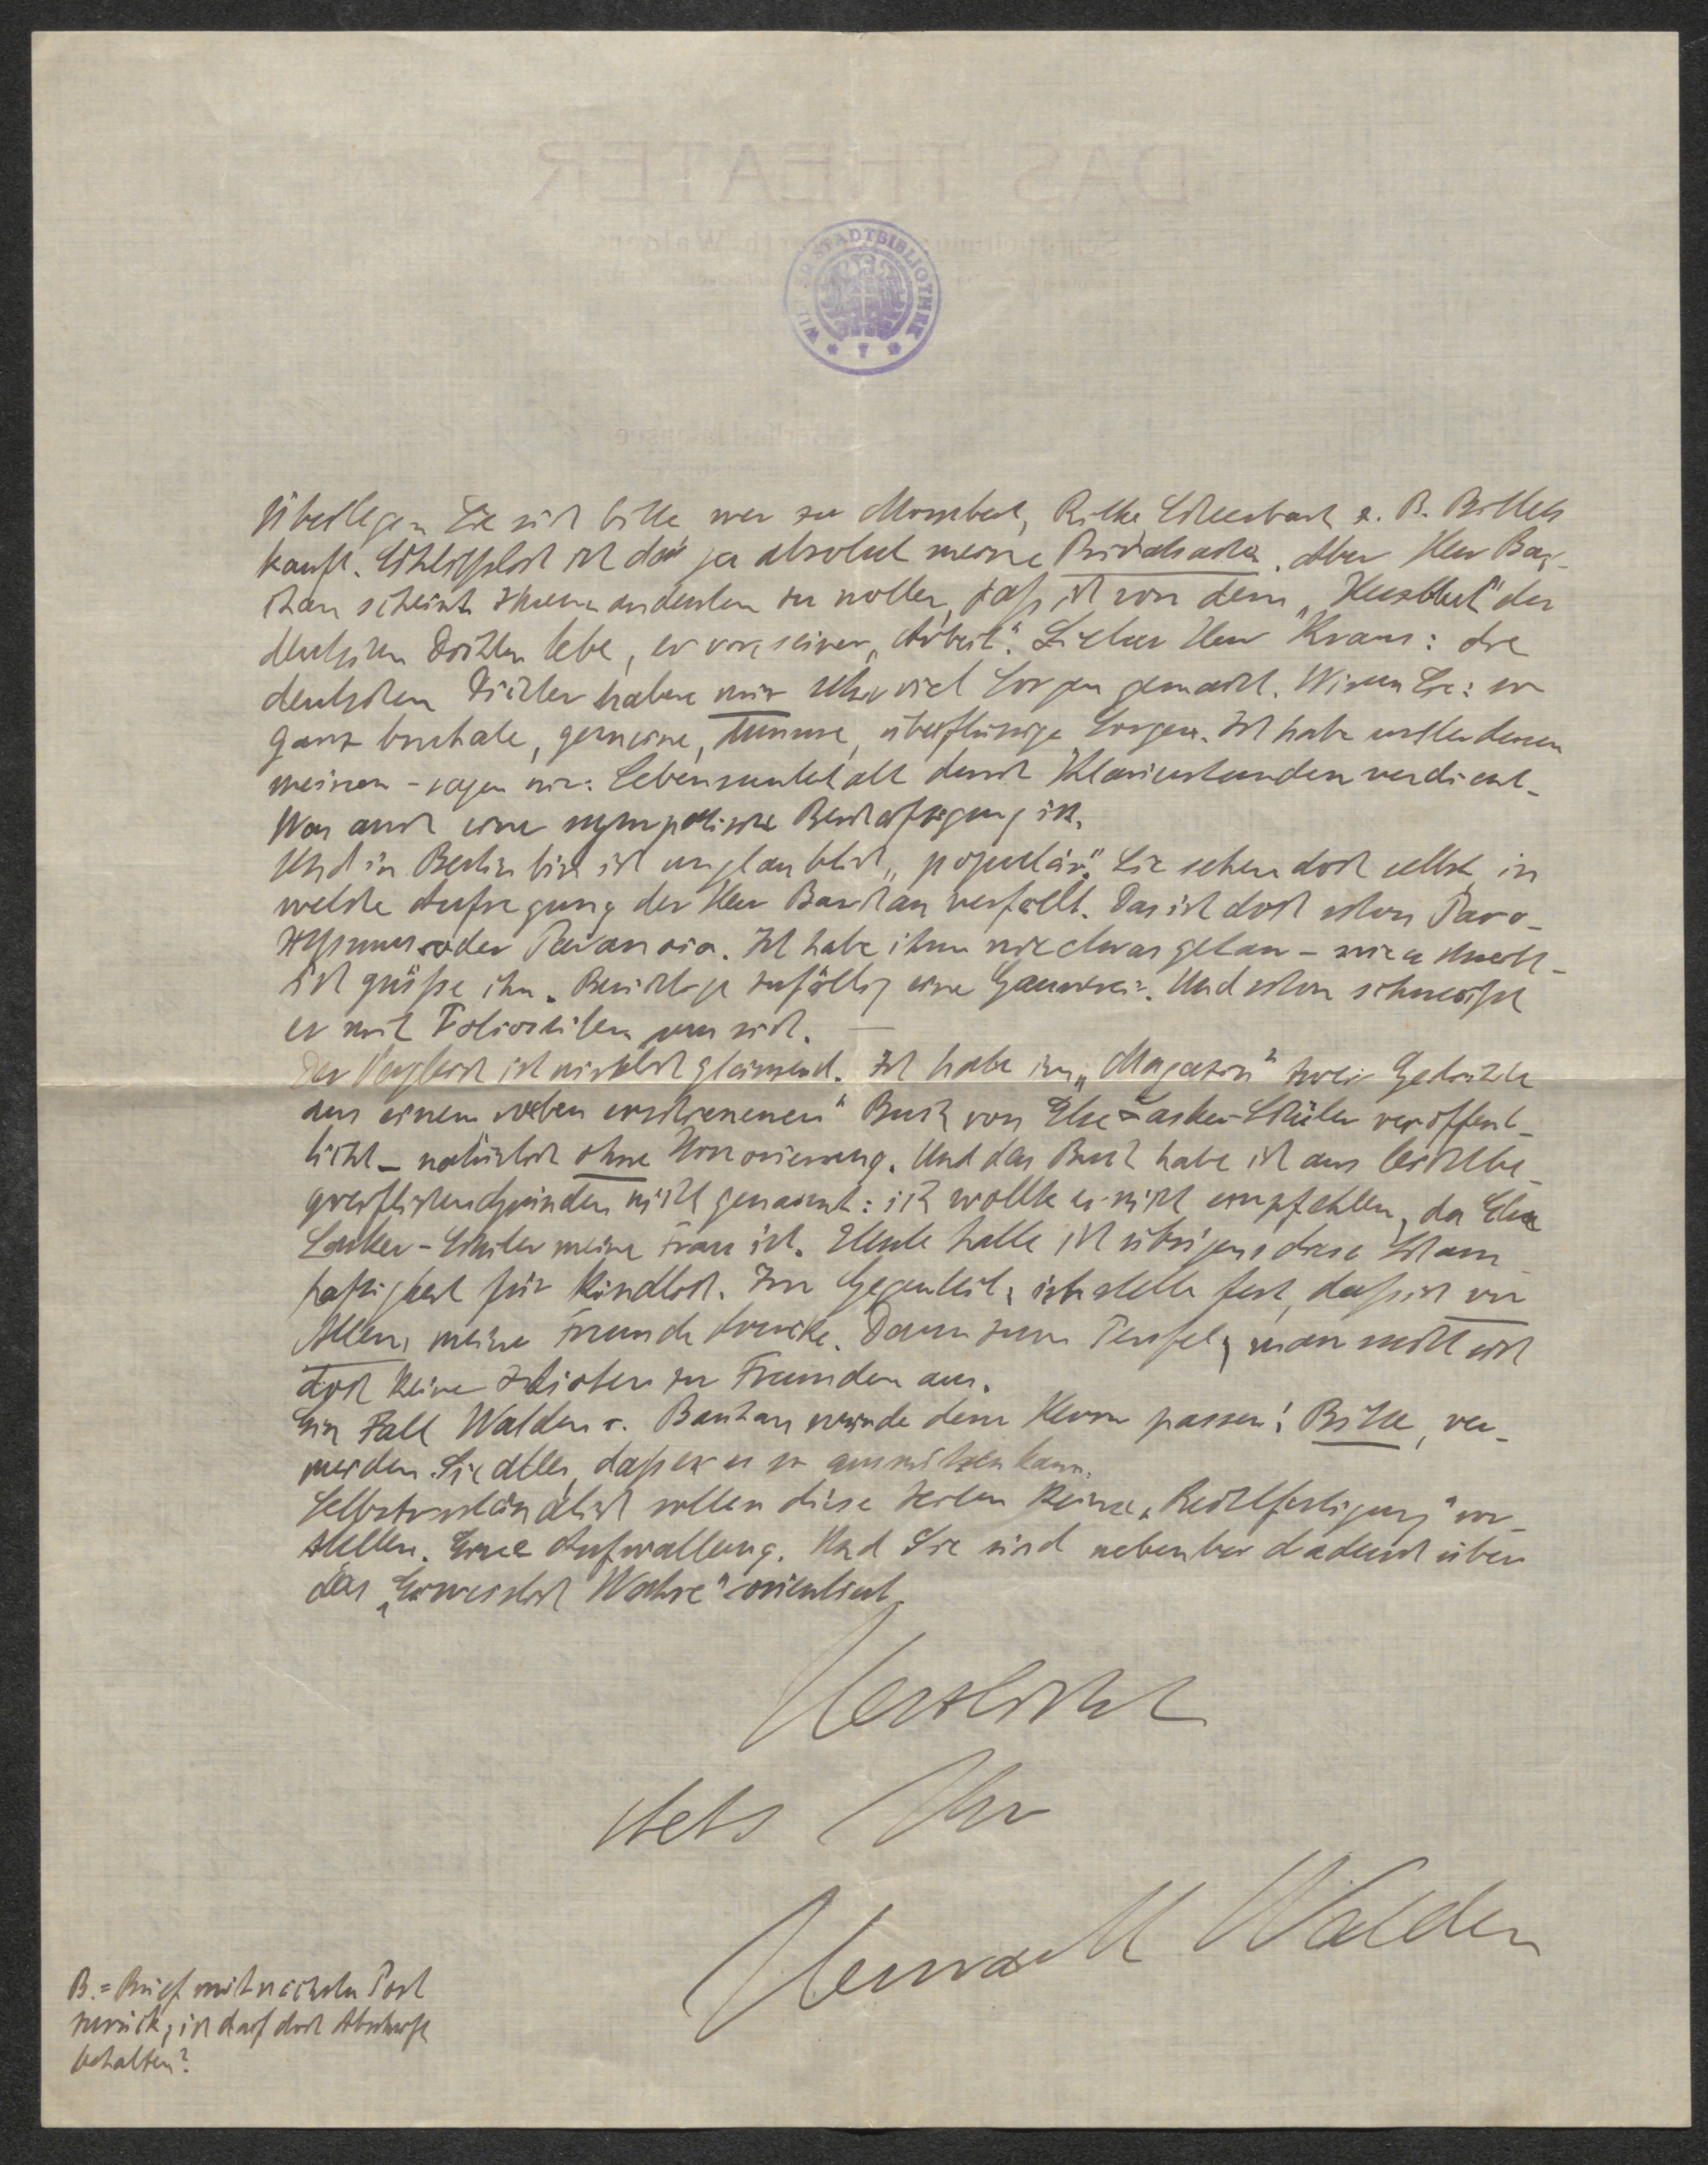 DAS THEATER
WIENER STADTBIBLIOTHEK
Überlegen Sie sich bitte wer zu Mombert, Rilke Scheerbart z. B. Billets
kauft. Schliesslich ist das ja absolut meine Privatsache. Aber Herr Bau-
chan scheint Ihnen andeuten zu wollen, dass ich von dem „Herzblut" der
deutschen Dichter lebe, er von seiner „Arbeit". Lieber Herr Kraus: die
deutschen Dichter haben mir sehr viel Sorgen gemacht. Wissen Sie: so
ganz brutale, gemeine, dumme, überflüssige Sorgen. Ich habe unterdessen
meinen – sagen wir: Lebensunterhalt durch Klavierstunden verdient.
Was auch eine sympatische Beschäftigung ist.
Und in Berlin bin ich unglaublich „populär". Sie sehen doch selbst, in
welche Aufregung der Herr Bauchan verfällt. Das ist doch schon Paro-
xysmus oder Paranoia. Ich habe ihm nie etwas getan –
ich grüsse ihn. Berichtige zufällig eine Gaunerei. Und schon schmeisst
er mit Folioseiten um sich.
Der Vergleich ist wirklich glänzend. Ich habe im „Magazin" zwei Gedichte
aus einem „soeben erschienenen" Buch von Else Lasker-Schüler veröffent-
licht – natürlich ohne Honorierung. Und das Buch habe ich aus leichtbe-
greiflichen Gründen nicht genannt: ich wollte es nicht empfehlen, da Else
Lasker-Schüler meine Frau ist. Heute halte ich übrigens diese Scham-
haftigkeit für kindlich. Im Gegenteil, ich stelle fest, dass ich vor
Allem meine Freunde drucke. Denn zum Teufel, man sucht sich
doch keine Idioten zu Freunden aus.
Ein Fall Walden c. Bauchan würde dem Herrn passen! Bitte, ver-
meiden Sie alles, dass er es so ausnützen kann.
Selbstverständlich sollen diese Zeilen keine „Rechtfertigung" vor-
stellen. Eine Aufwallung. Und Sie sind nebenbei dadurch über
das „Erweislich Wahre" orientiert.
Herzlichst
stets Ihr
Herwarth Walden
B.=Brief mit nächster Post
zurück; ich darf doch Abschrift
behalten?